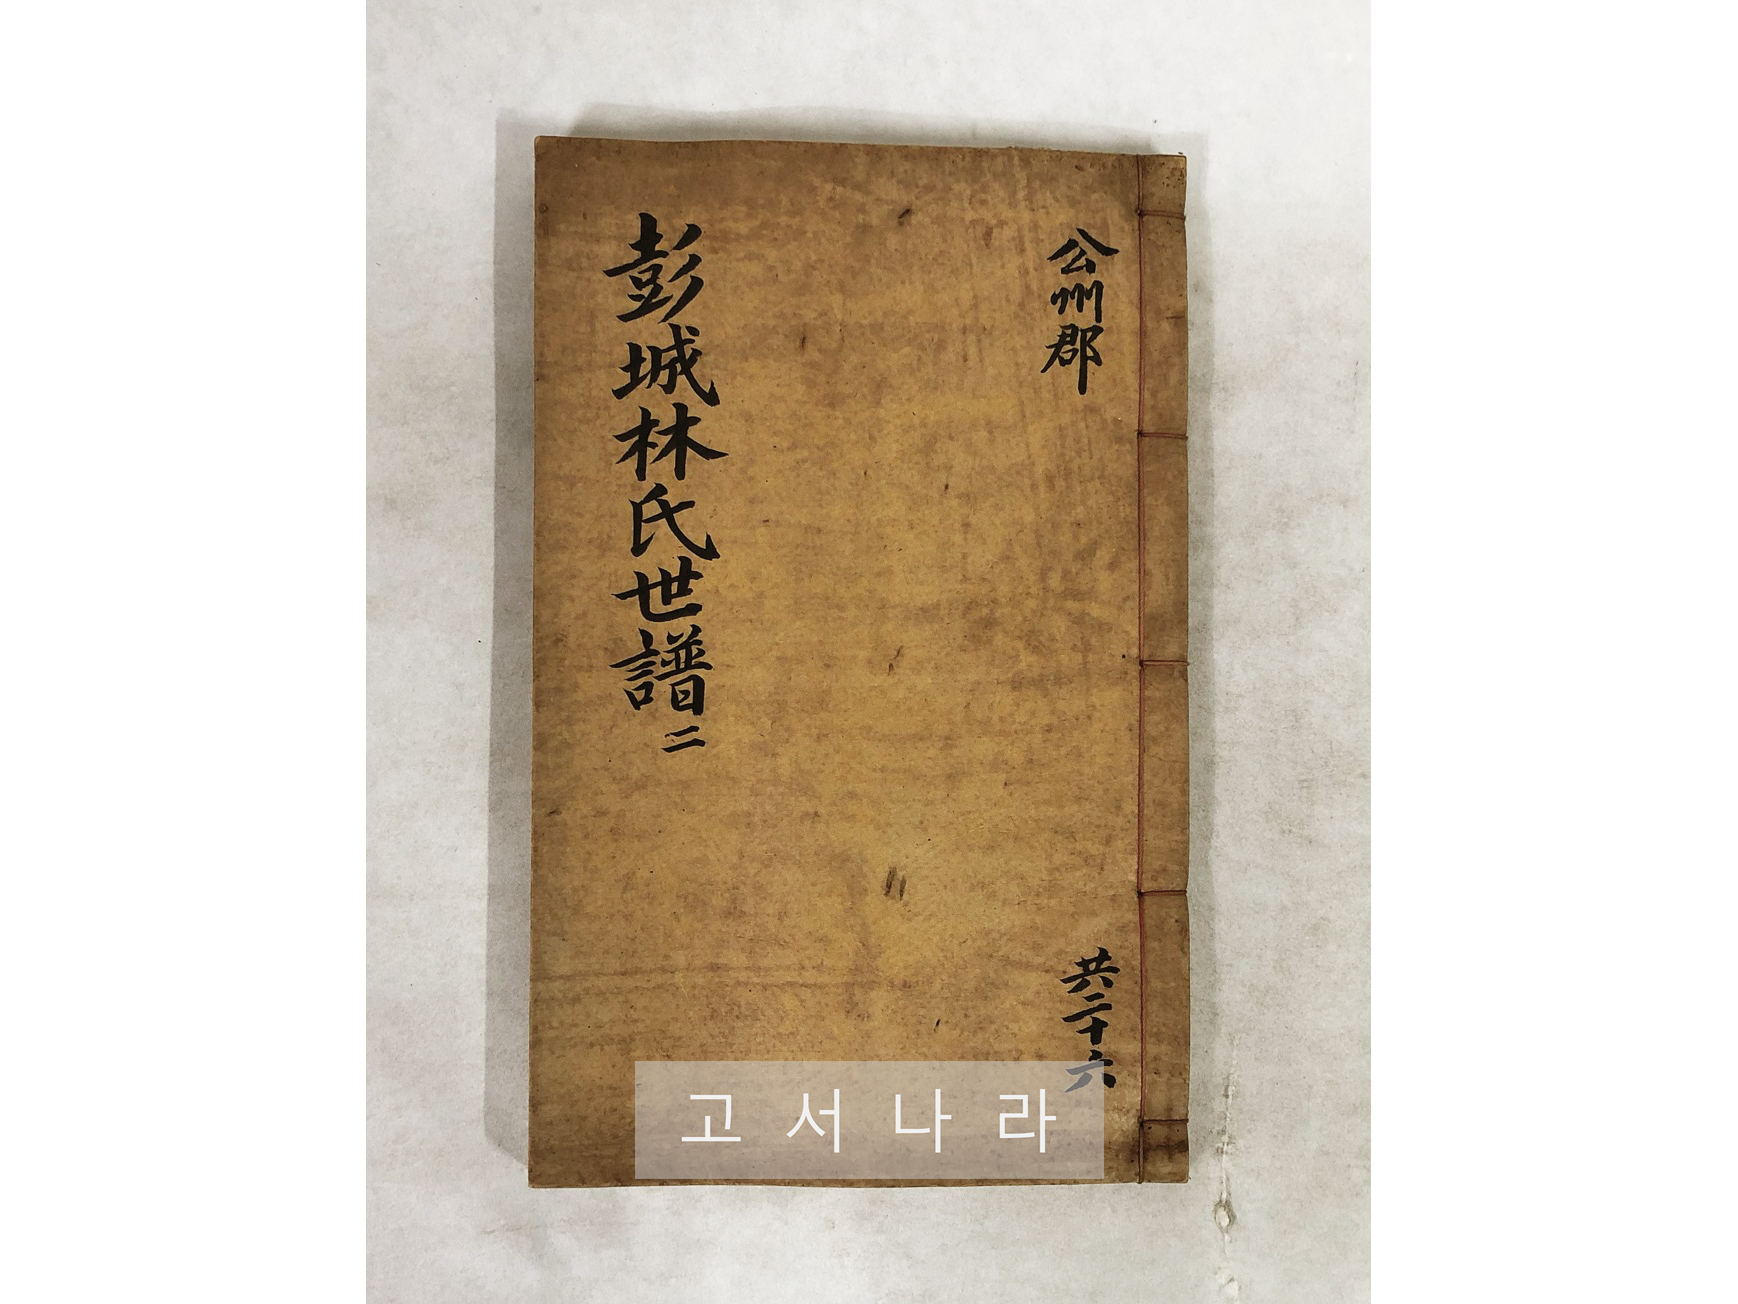 公州郡
共二十六
彭城林氏世譜 二
고서나라